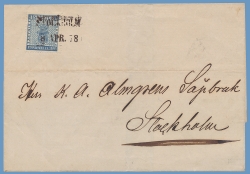 STOCKHOLM
8 APR. 78
Herr K. A. Almgrens Sipbruk
Stockholm